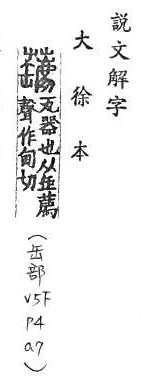 説文解字
大徐本
瓦器也从缶薦
聲作甸切
(缶部 V5F P4 a7)